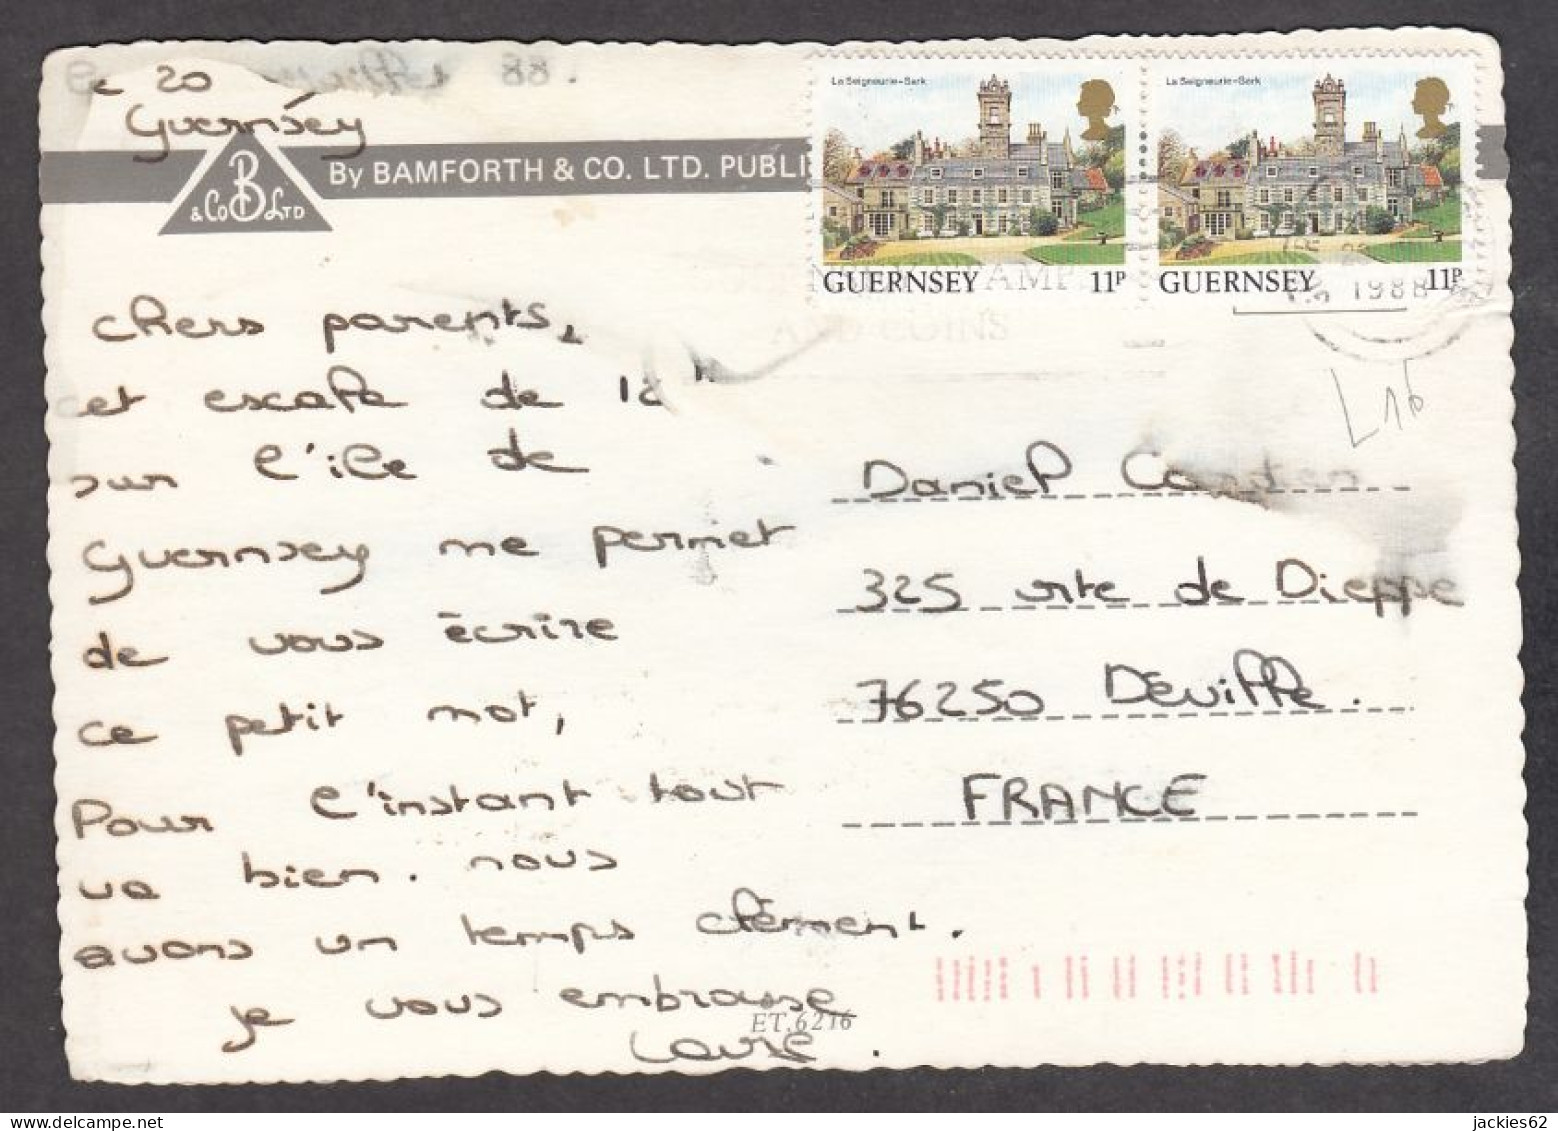 le 20
Guernsey
88
By BAMFORTH & CO. LTD. PUBLI
B
& Co LTD
La Seigneurie-Sark
GUERNSEY 11P
La Seigneurie-Sark
GUERNSEY 11P
1988
AND COINS
L16
chers parents,
cet escale de 12 h
sur l'île de
Guernsey me permet
de vous écrire
ce petit mot,
Pour l'instant tout
va bien. nous
avons un temps clément.
je vous embrasse
Laure.
Daniel
325 rte de Dieppe
76250 Déville.
FRANCE
ET.6216
jackies62